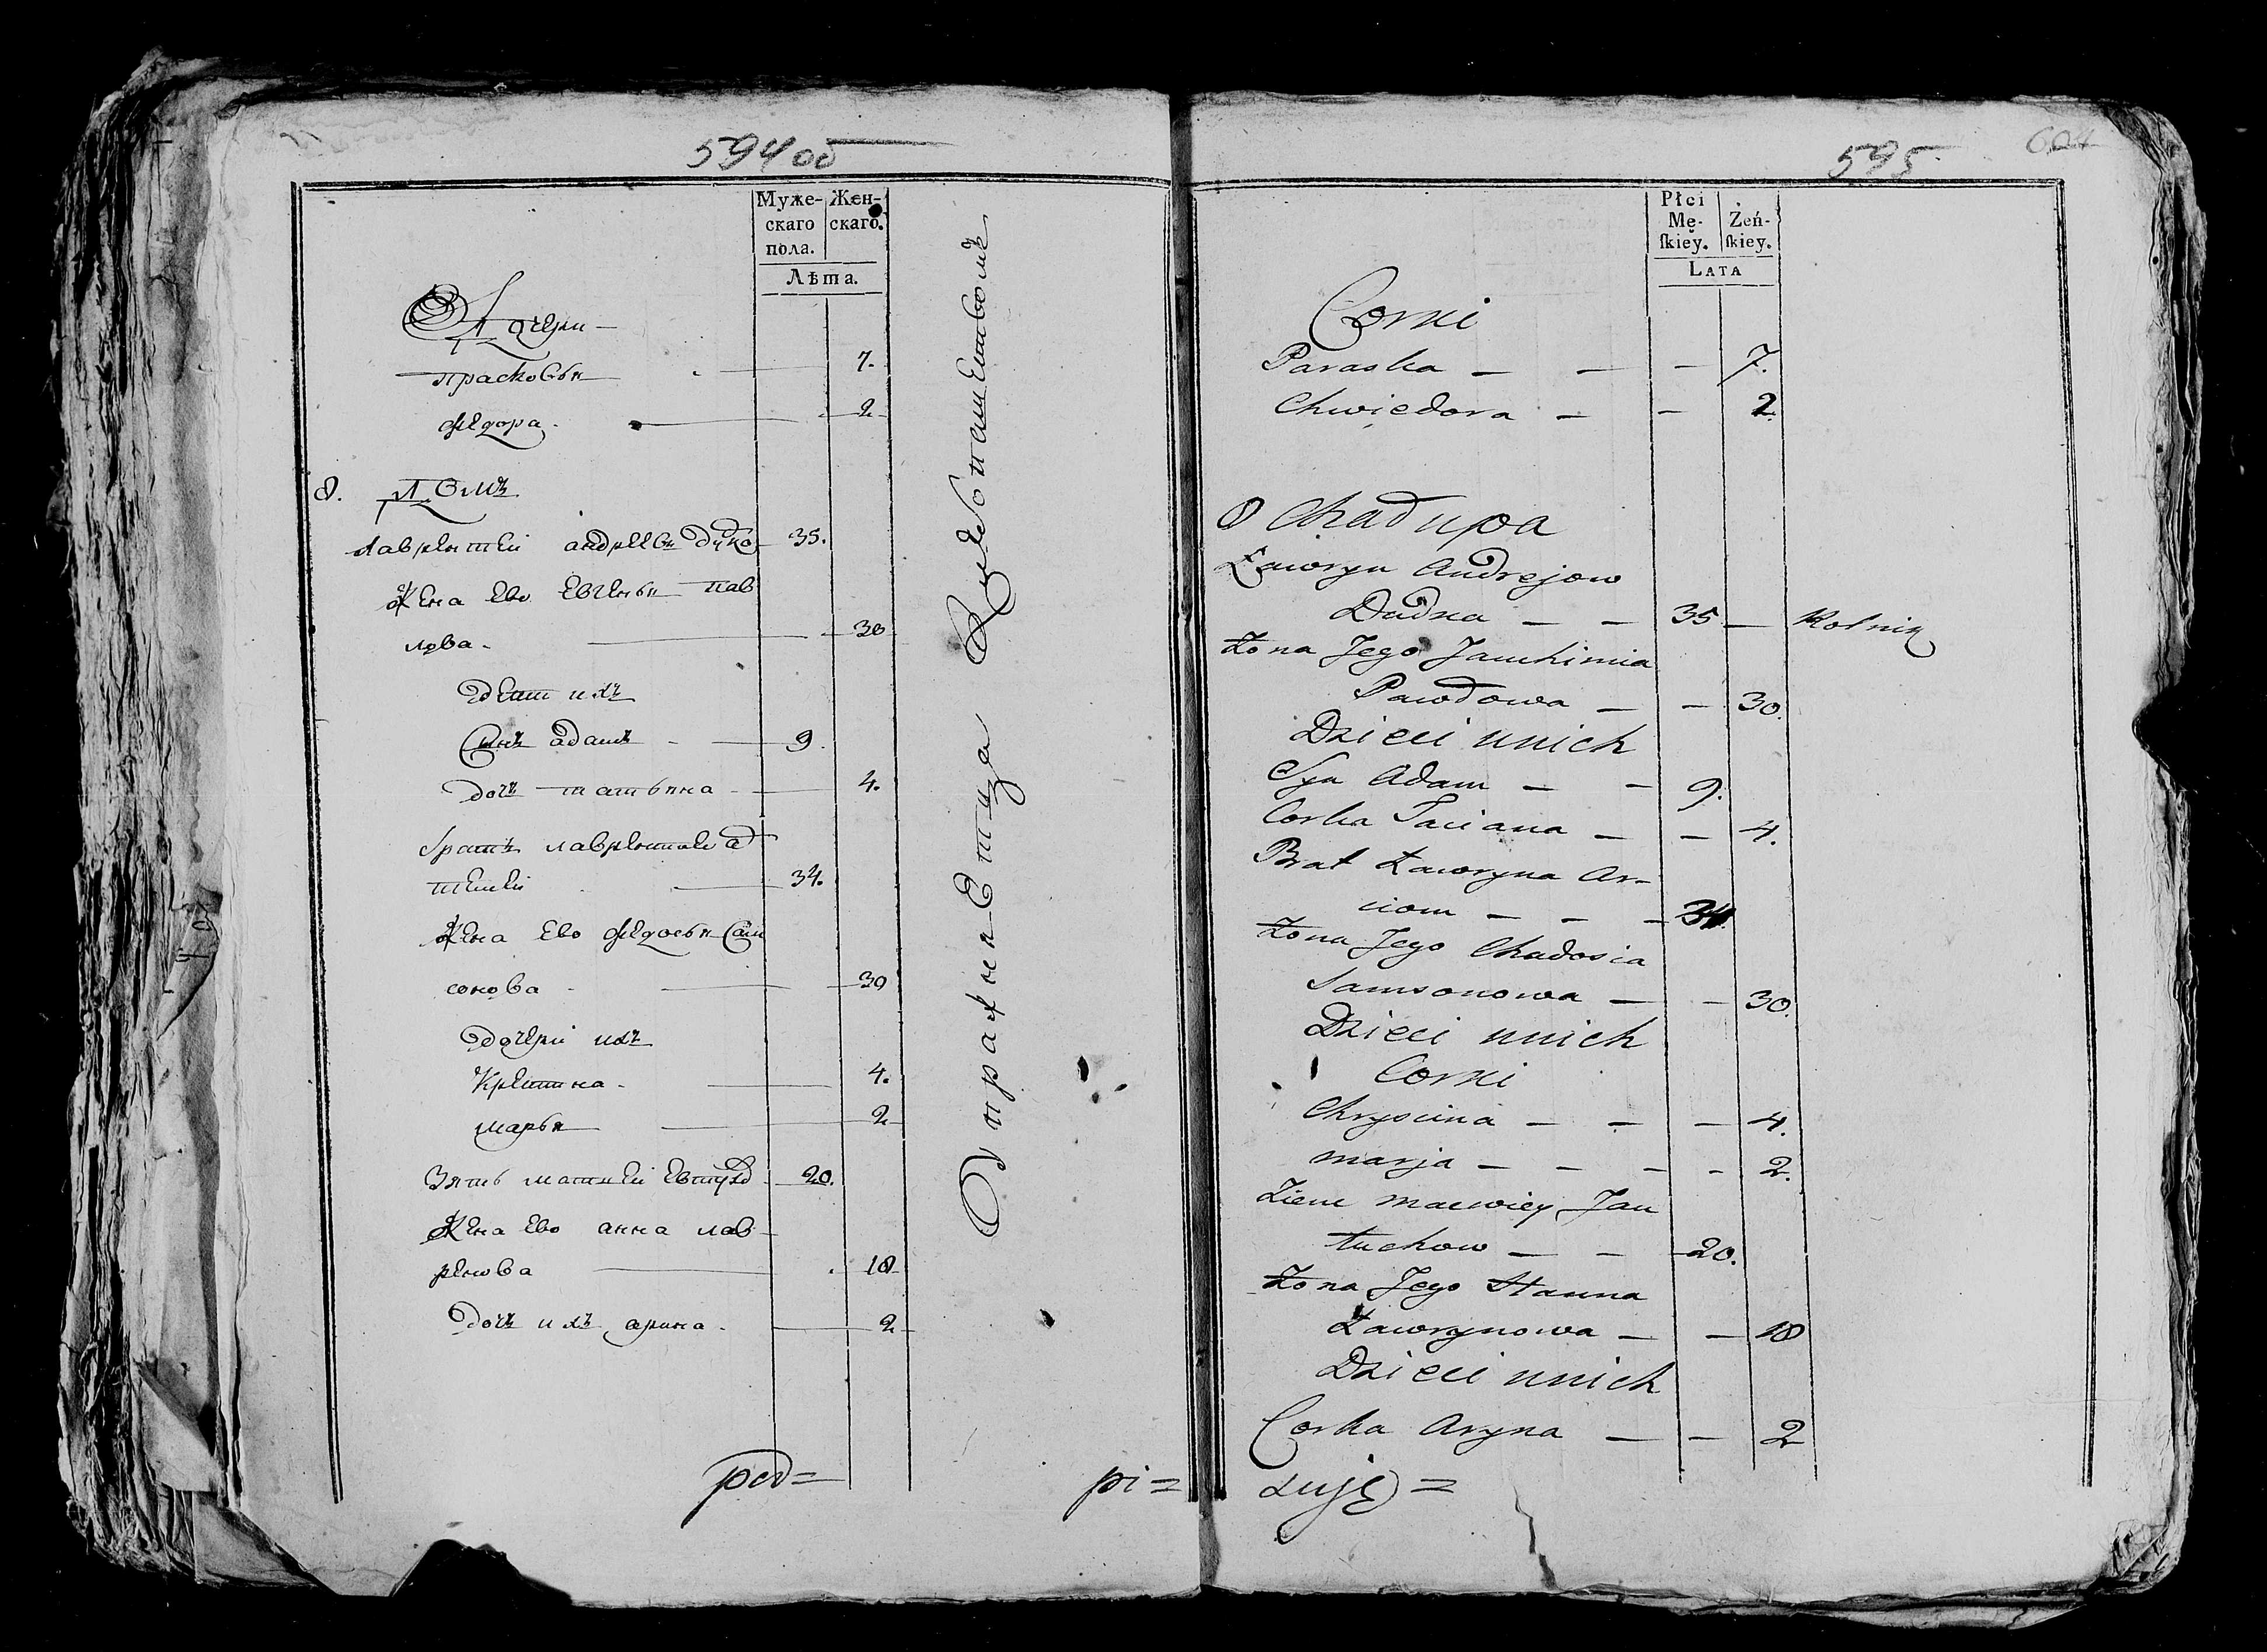 594об
Муже-
скаго
пола.
Жен-
скаго.
Лѣта.
Дочери
прасковья 7.
федора 2
8. Домъ
лаврентей андреевъ дудка 35.
Жена ево евгенья пав
лова 30
дети ихъ
Сынъ адамъ 9.
дочь татьяна 4.
братъ лаврентия а
34.
Жена ево федосья Сам
сонова 30
дочери ихъ
Крестина 4.
марья 2
Зять матвей 20.
Жена ево анна лав
ренова 18
дочь ихъ арина 2
pod=
pi=
595
604
Płci
Mę-
ſkiey.
Żeń-
ſkiey.
LATA
Corki
Paraska — — — 7.
Chwiedora — — 2.
8 Chałupa
Ławryn Andrejow
Dudka — — 35 — Rolnik
Żona Jego Jauchimia
Pawłowa — — 30.
Dzieci unich
Syn Adam — — 9.
Corka Taciana — — 4.
Brat Ławryna Ar-
ciom — — — 34.
Żona Jego Chadosia
Samsonowa — — 30.
Dzieci unich
Corki
Chryscina — — — 4.
Marja — — — — 2.
Ziem Maciey Jau
tuchow — — 20.
Żona Jego Hanna
Ławrynowa — — 18
Dzieci unich
Corka Aryna — — 2
suję=